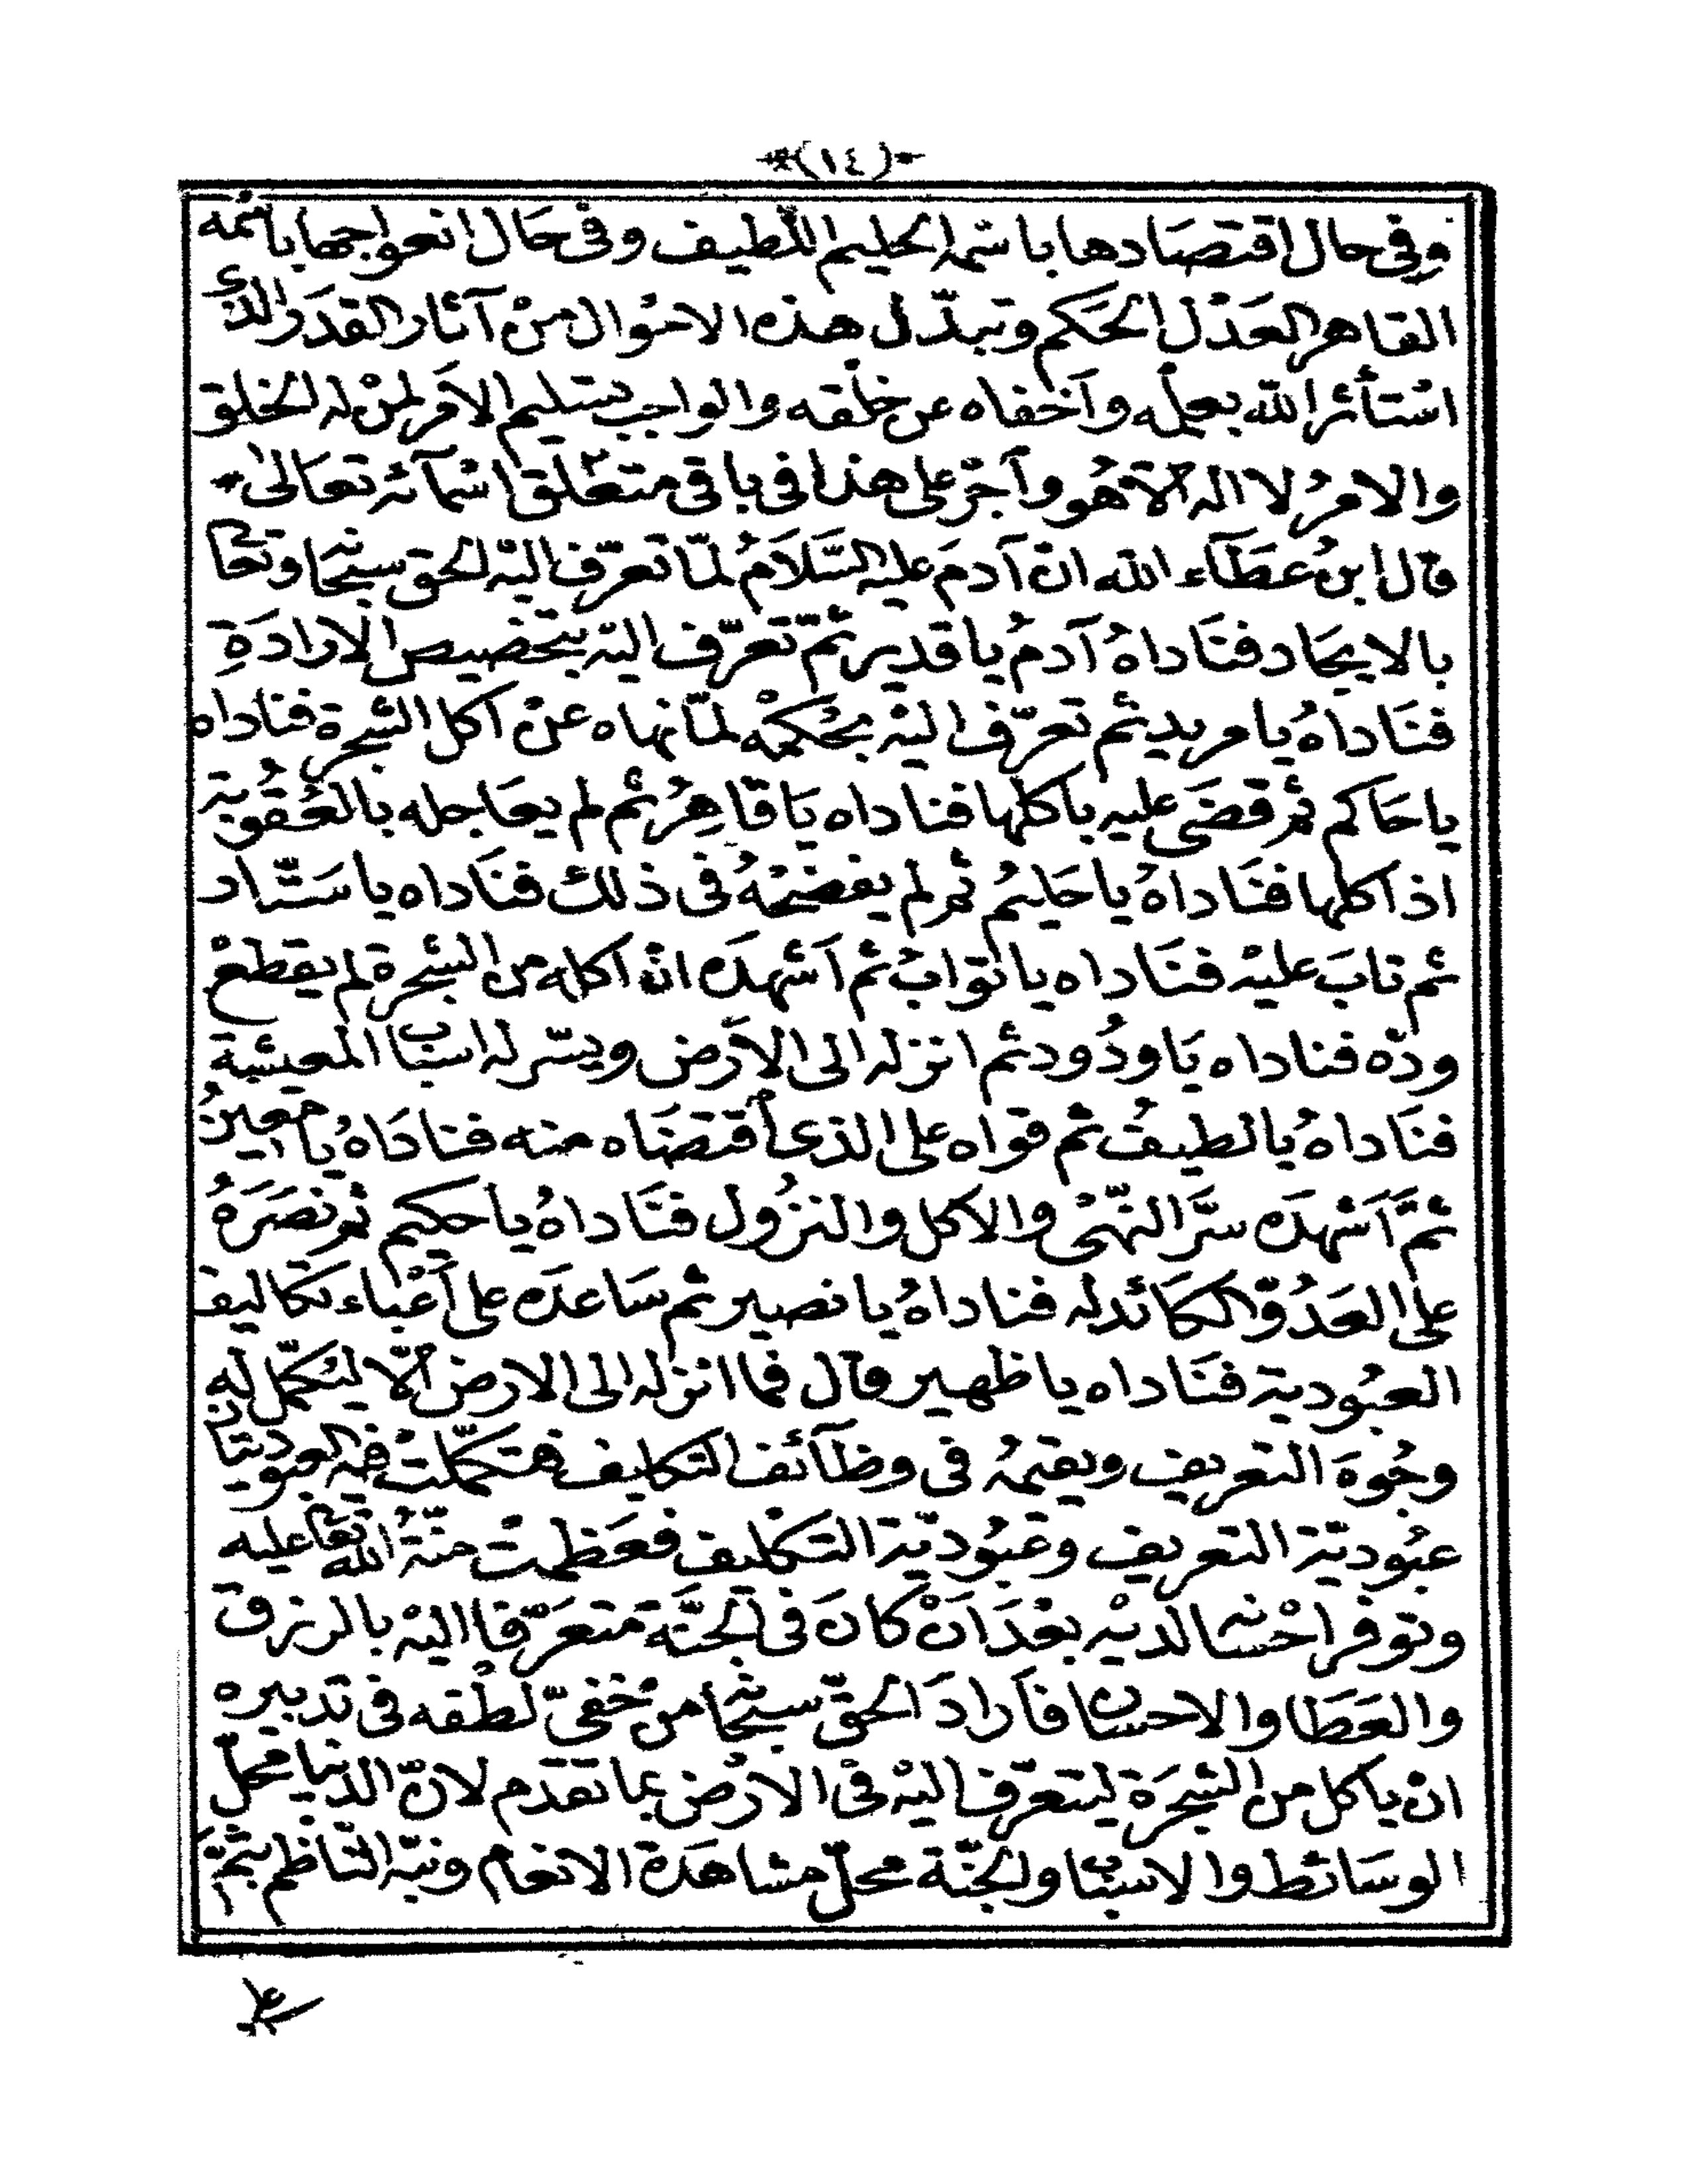 (١٤)
وفى حال اقتصادها باسمه الحليم اللّطيف وفى حَال انعواجها باسْمه
القاهر العَدْل الحَكم وتبدّل هذه الاحْوال منْ آثار القدَر الذى
اسْتأثر الله بعلمه وأخفاه عن خلْقه والواجب تسليم الاَمر لمنْ له الخلق
والامرُ لا اله الّا هُو وأجْرِ على هذا فى باقى متعلّق اسْمآئه تعَالىٰ *
قال ابنُ عَطَآء الله انّ آدمَ عليه السَّلَامُ لمّا تعرّف اليْه الحق سبْحَا وتعَا
بالايجَاد فنَاداهُ آدمُ يا قدير ثمّ تعرّف اليْه بتخصيص الارادَةِ
فنَاداهُ يا مريد ثم تعرّف اليْه بحُكمْه لمّا نهاه عنْ اكل الشجرة فناداه
يا حَاكم ثم قضَى عليه باكلها فناداه يَا قاهِرُ ثم لم يعَاجله بالعُقُوبة
اذ اكلها فنَاداهُ يا حَليمُ ثم لم يفضحْهُ فى ذلك فنَاداه يا ستّار
ثم تابَ عليْه فنَاداه يا توابُ ثم أشهدَه انّ اكله من الشجرة لم يقطعْ
ودّه فناداه يَا ودُود ثم انزله الى الاَرض ويسّر له اسْبَاب المعيشة
فنَاداهُ يا لطيفُ ثم قواه على الذى أقتضَاه منه فنادَاهُ يا معينُ
ثمَّ أشهدَه سرَّ النّهْى والاكل والنزُول فنَاداهُ يا حكيم ثم نصَرَهُ
على العَدُوّ المكَائد له فناداهُ يا نصير ثم سَاعدَه على أعْباء تكاليف
العبُودية فنَاداه يا ظهير قال فما انزله الى الارض الّا ليُكمّل له
وجُوهَ التعريف ويقيمُه فى وظآئف التكليف فتكمّلتْ فيه العبوديتان
عبُوديّة التعريف وعبُوديّة التكليف فعَظمتْ منّةُ الله تعَا عليه
وتوفر احْسَانه لديْه بعْدَ اَنْ كانَ فى الجنَّة متعَرّفا اليْه بالرزق
والعَطَا والاحسان فأرادَ الحقّ سبْحَا منْ خفىّ لطْفه فى تدبيره
انْ ياكل من الشجَرَة ليتعرّف اليْه فى الارْض بما تقدم لانّ الدنيا محلّ
الوسَائط والاسبَاب والجنّة محلّ مشاهَدة الانعام ونبّه النّاظم بثمّ
على